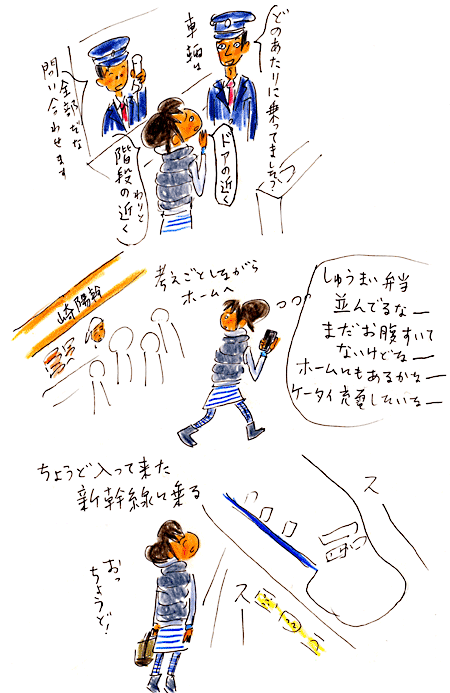 どのあたりに乗ってました?
車輌は
全部だな
問い合わせます
ドアの近く
わりと
階段の近く
考えごとしながら
ホームへ
崎陽軒
しゅうまい弁当
並んでるなー
まだお腹すいて
ないけどなー
ホームにもあるかなー
ケータイ充電したいなー
ちょうど入って来た
新幹線に乗る
おっ
ちょうど!
スー
スー